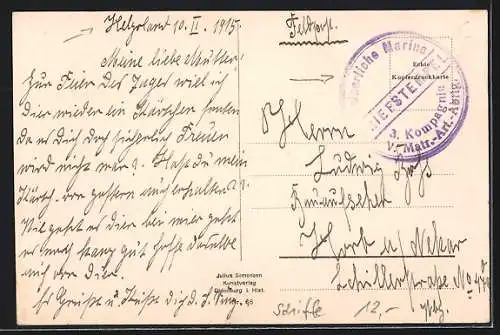 Helgoland 10. II. 1915.
Feldpost.
Meine liebe Mutter!
Zur Feier des Tages will ich
dir wieder ein Kärtchen senden
da es dich doch sicherlich freuen
wird nicht war? Hast du mein
Kärtch. von gestern auch erhalten?
Wie geht es dir bei mir geht
es noch ganz gut hoffe dasselbe
auch von dir.
Es Grüßt u. Küßt dich d. S.
Kaiserliche Marine
BRIEFSTEMPEL
3. Kompagnie
V. Matr.-Art.-Abtlg.
Echte
Kupferdruckkarte
Herrn
Ludwig
Bauaufseher
Horb a/ Nekar
Schillerstraße No
Julius Simonsen
Kunstverlag
Oldenburg i. Holst.
Schiffe 12,-